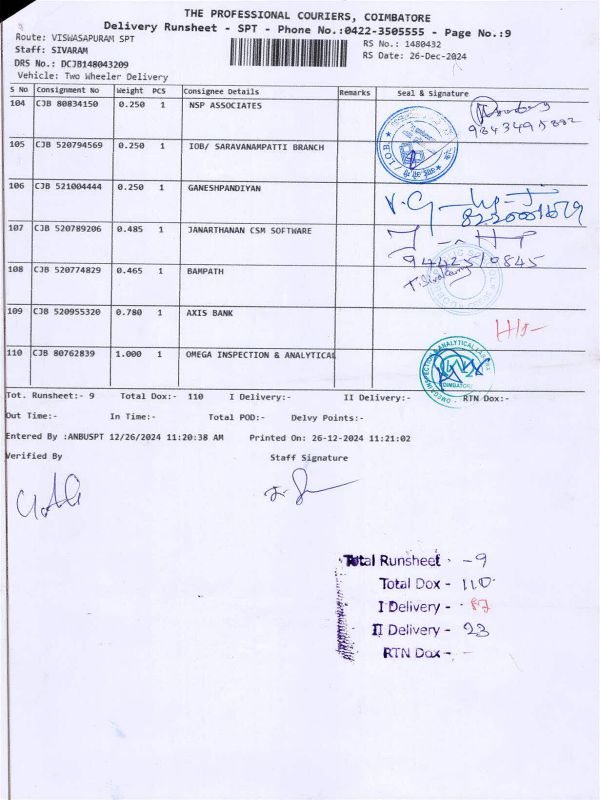 THE PROFESSIONAL COURIERS, COIMBATORE
Delivery Runsheet - SPT - Phone No.:0422-3505555 - Page No.:9
Route: VISWASAPURAM SPT
RS No.: 1480432
Staff: SIVARAM
RS Date: 26-Dec-2024
DRS No.: DCJB148043209
Vehicle: Two Wheeler Delivery
S No Consignment No Weight PCS Consignee Details Remarks Seal & Signature
104 CJB 80834150 0.250 1 NSP ASSOCIATES
105 CJB 520794569 0.250 1 IOB/ SARAVANAMPATTI BRANCH
106 CJB 521004444 0.250 1 GANESHPANDIYAN
107 CJB 520789206 0.485 1 JANARTHANAN CSM SOFTWARE
9442510845
108 CJB 520774829 0.465 1 BAMPATH
109 CJB 520955320 0.780 1 AXIS BANK
110 CJB 80762839 1.000 1 OMEGA INSPECTION & ANALYTICAL
Tot. Runsheet:- 9 Total Dox:- 110 I Delivery:- II Delivery:- RTN Dox:-
Out Time:- In Time:- Total POD:- Delvy Points:-
Entered By :ANBUSPT 12/26/2024 11:20:38 AM Printed On: 26-12-2024 11:21:02
Verified By Staff Signature
Total Runsheet - 9
Total Dox - 110
I Delivery - 87
II Delivery - 23
RTN Dox - -